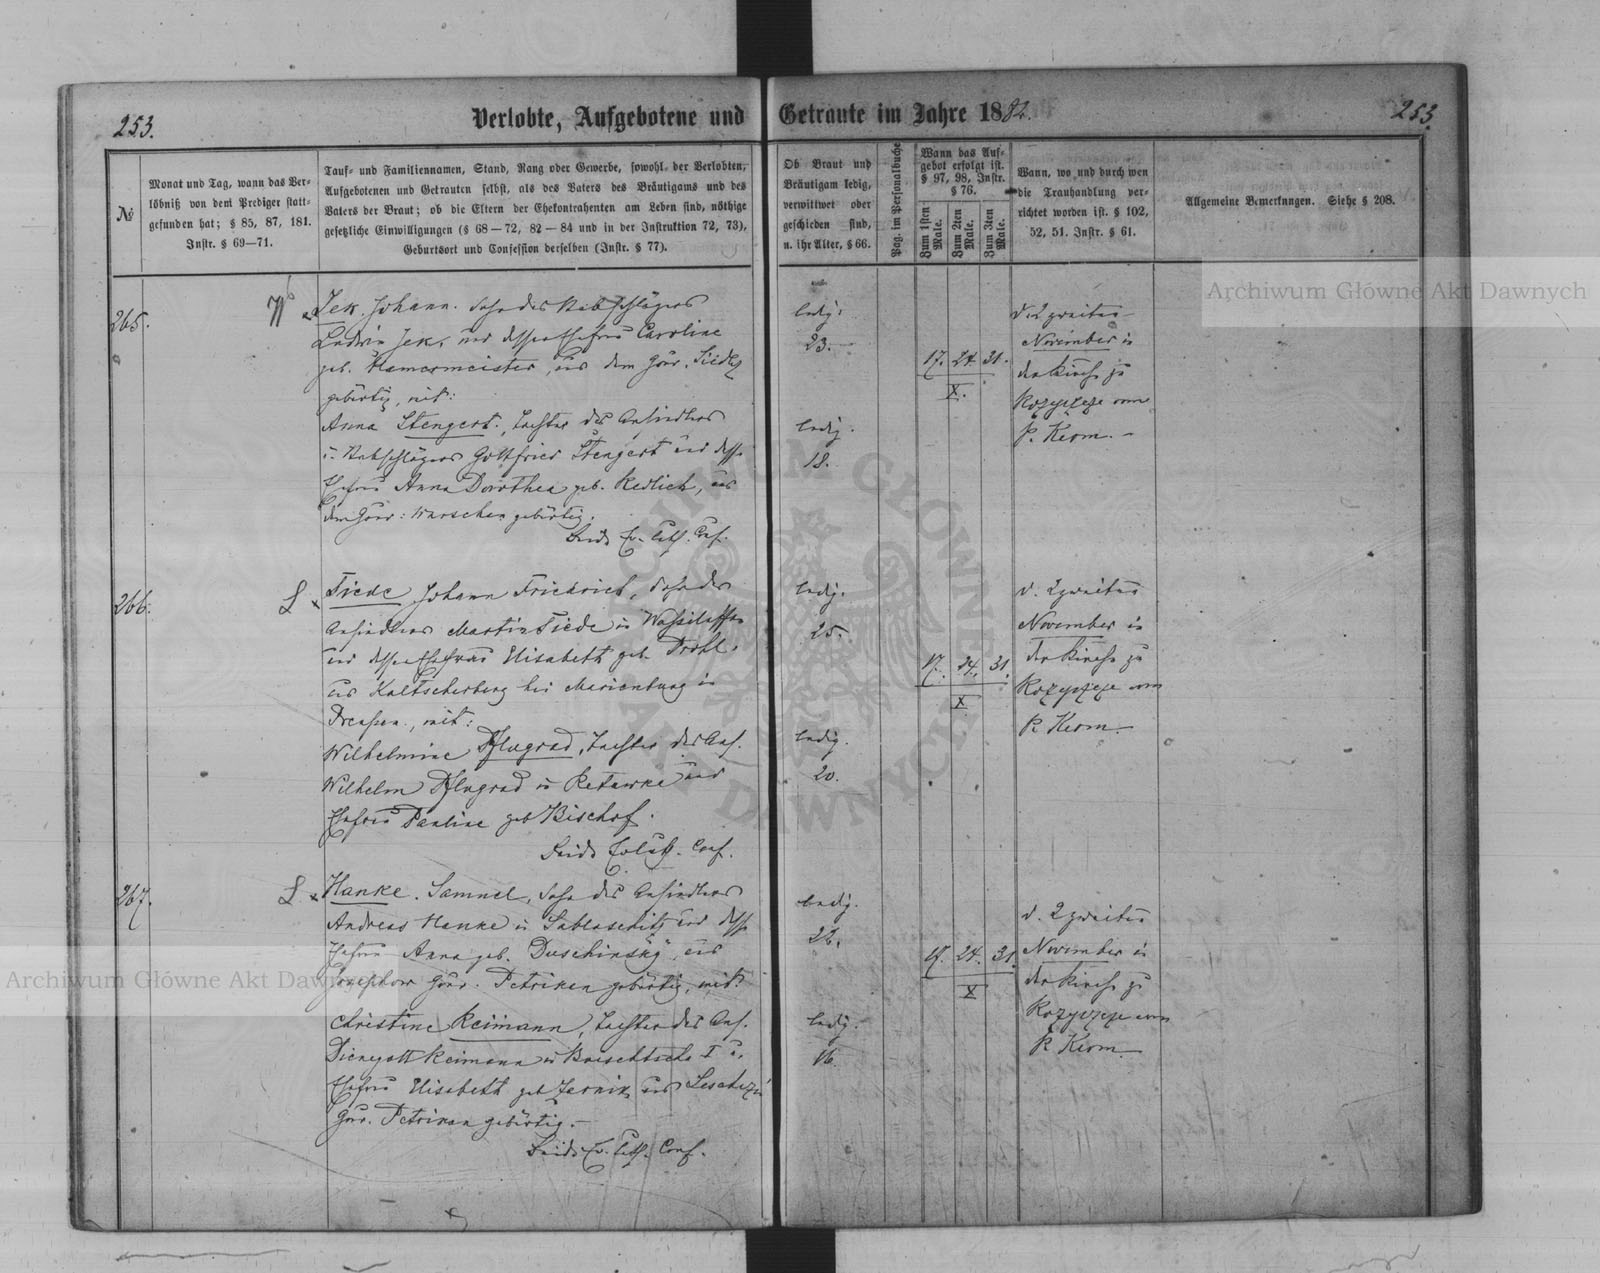 253.
Verlobte, Aufgebotene und Getraute im Jahre 1882.
253
№
Monat und Tag, wann das Ver-
löbniß von dem Prediger statt-
gefunden hat; § 85, 87, 181.
Instr. § 69—71.
Tauf- und Familiennamen, Stand, Rang oder Gewerbe, sowohl der Verlobten,
Aufgebotenen und Getrauten selbst, als des Vaters des Bräutigams und des
Vaters der Braut; ob die Eltern der Ehekontrahenten am Leben sind, nöthige
gesetzliche Einwilligungen (§ 68—72, 82—84 und in der Instruktion 72, 73),
Geburtsort und Confession derselben (Instr. § 77).
Ob Braut und
Bräutigam ledig,
verwittwet oder
geschieden sind,
u. ihr Alter, § 66.
Pag. im Personalbuche
Wann das Auf-
gebot erfolgt ist.
§ 97, 98, Instr.
§ 76.
Zum 1sten Male.
Zum 2ten Male.
Zum 3ten Male.
Wann, wo und durch wen
die Trauhandlung ver-
richtet worden ist. § 102,
52, 51. Instr. § 61.
Allgemeine Bemerkungen. Siehe § 208.
265.
Jek Johann. Sohn des Stabschlägers
Ludwig Jek, und dessen Ehefrau Caroline
geb. Hamermeister, aus dem Gouv. Siedlez
gebürtig, mit:
Anna Stengert, Tochter des Ansiedlers
u. Stabschlägers Gottfried Stengert und dessen
Ehefrau Anna Dorothea geb. Redlich, aus
dem Gouv: Warschau gebürtig.
Beide Ev. Luth. Conf.
ledig.
23.
ledig.
18.
17. 24. 31.
X.
d. 2 zweiten
November in
der Kirche zu
Rozyszcze vom
P. Kerm.
266.
L
Tiede Johann Friedrich, Sohn des
Ansiedlers Martin Tiede in
und dessen Ehefrau Elisabeth geb.
aus bei Marienburg in
Preußen, mit:
Wilhelmine Pflugrad, Tochter des Ans.
Wilhelm Pflugrad in und
Ehefrau Pauline geb Bischof.
Beide Ev Luth. Conf.
ledig.
25.
ledig.
20.
17. 24. 31.
X
d. 2 zweiten
November in
der Kirche zu
Rozyszcze vom
P. Kerm.
267.
L
Hanke. Samuel, Sohn des Ansiedlers
Andreas Hanke in und dessen
Ehefrau Anna geb. Duschinsky, aus
Josephow Gouv. Petrikau gebürtig, mit:
Christine Reimann, Tochter des Ans.
Reimann in I u.
Ehefrau Elisabeth geb aus
Gouv. Petrikau gebürtig.
Beide Ev. Luth. Conf.
ledig.
ledig.
17. 24. 31.
X
d. 2 zweiten
November in
der Kirche zu
Rozyszcze vom
P. Kerm.
Archiwum Główne Akt Dawnych
Archiwum Główne Akt Dawnych
ARCHIWUM GŁÓWNE AKT DAWNYCH